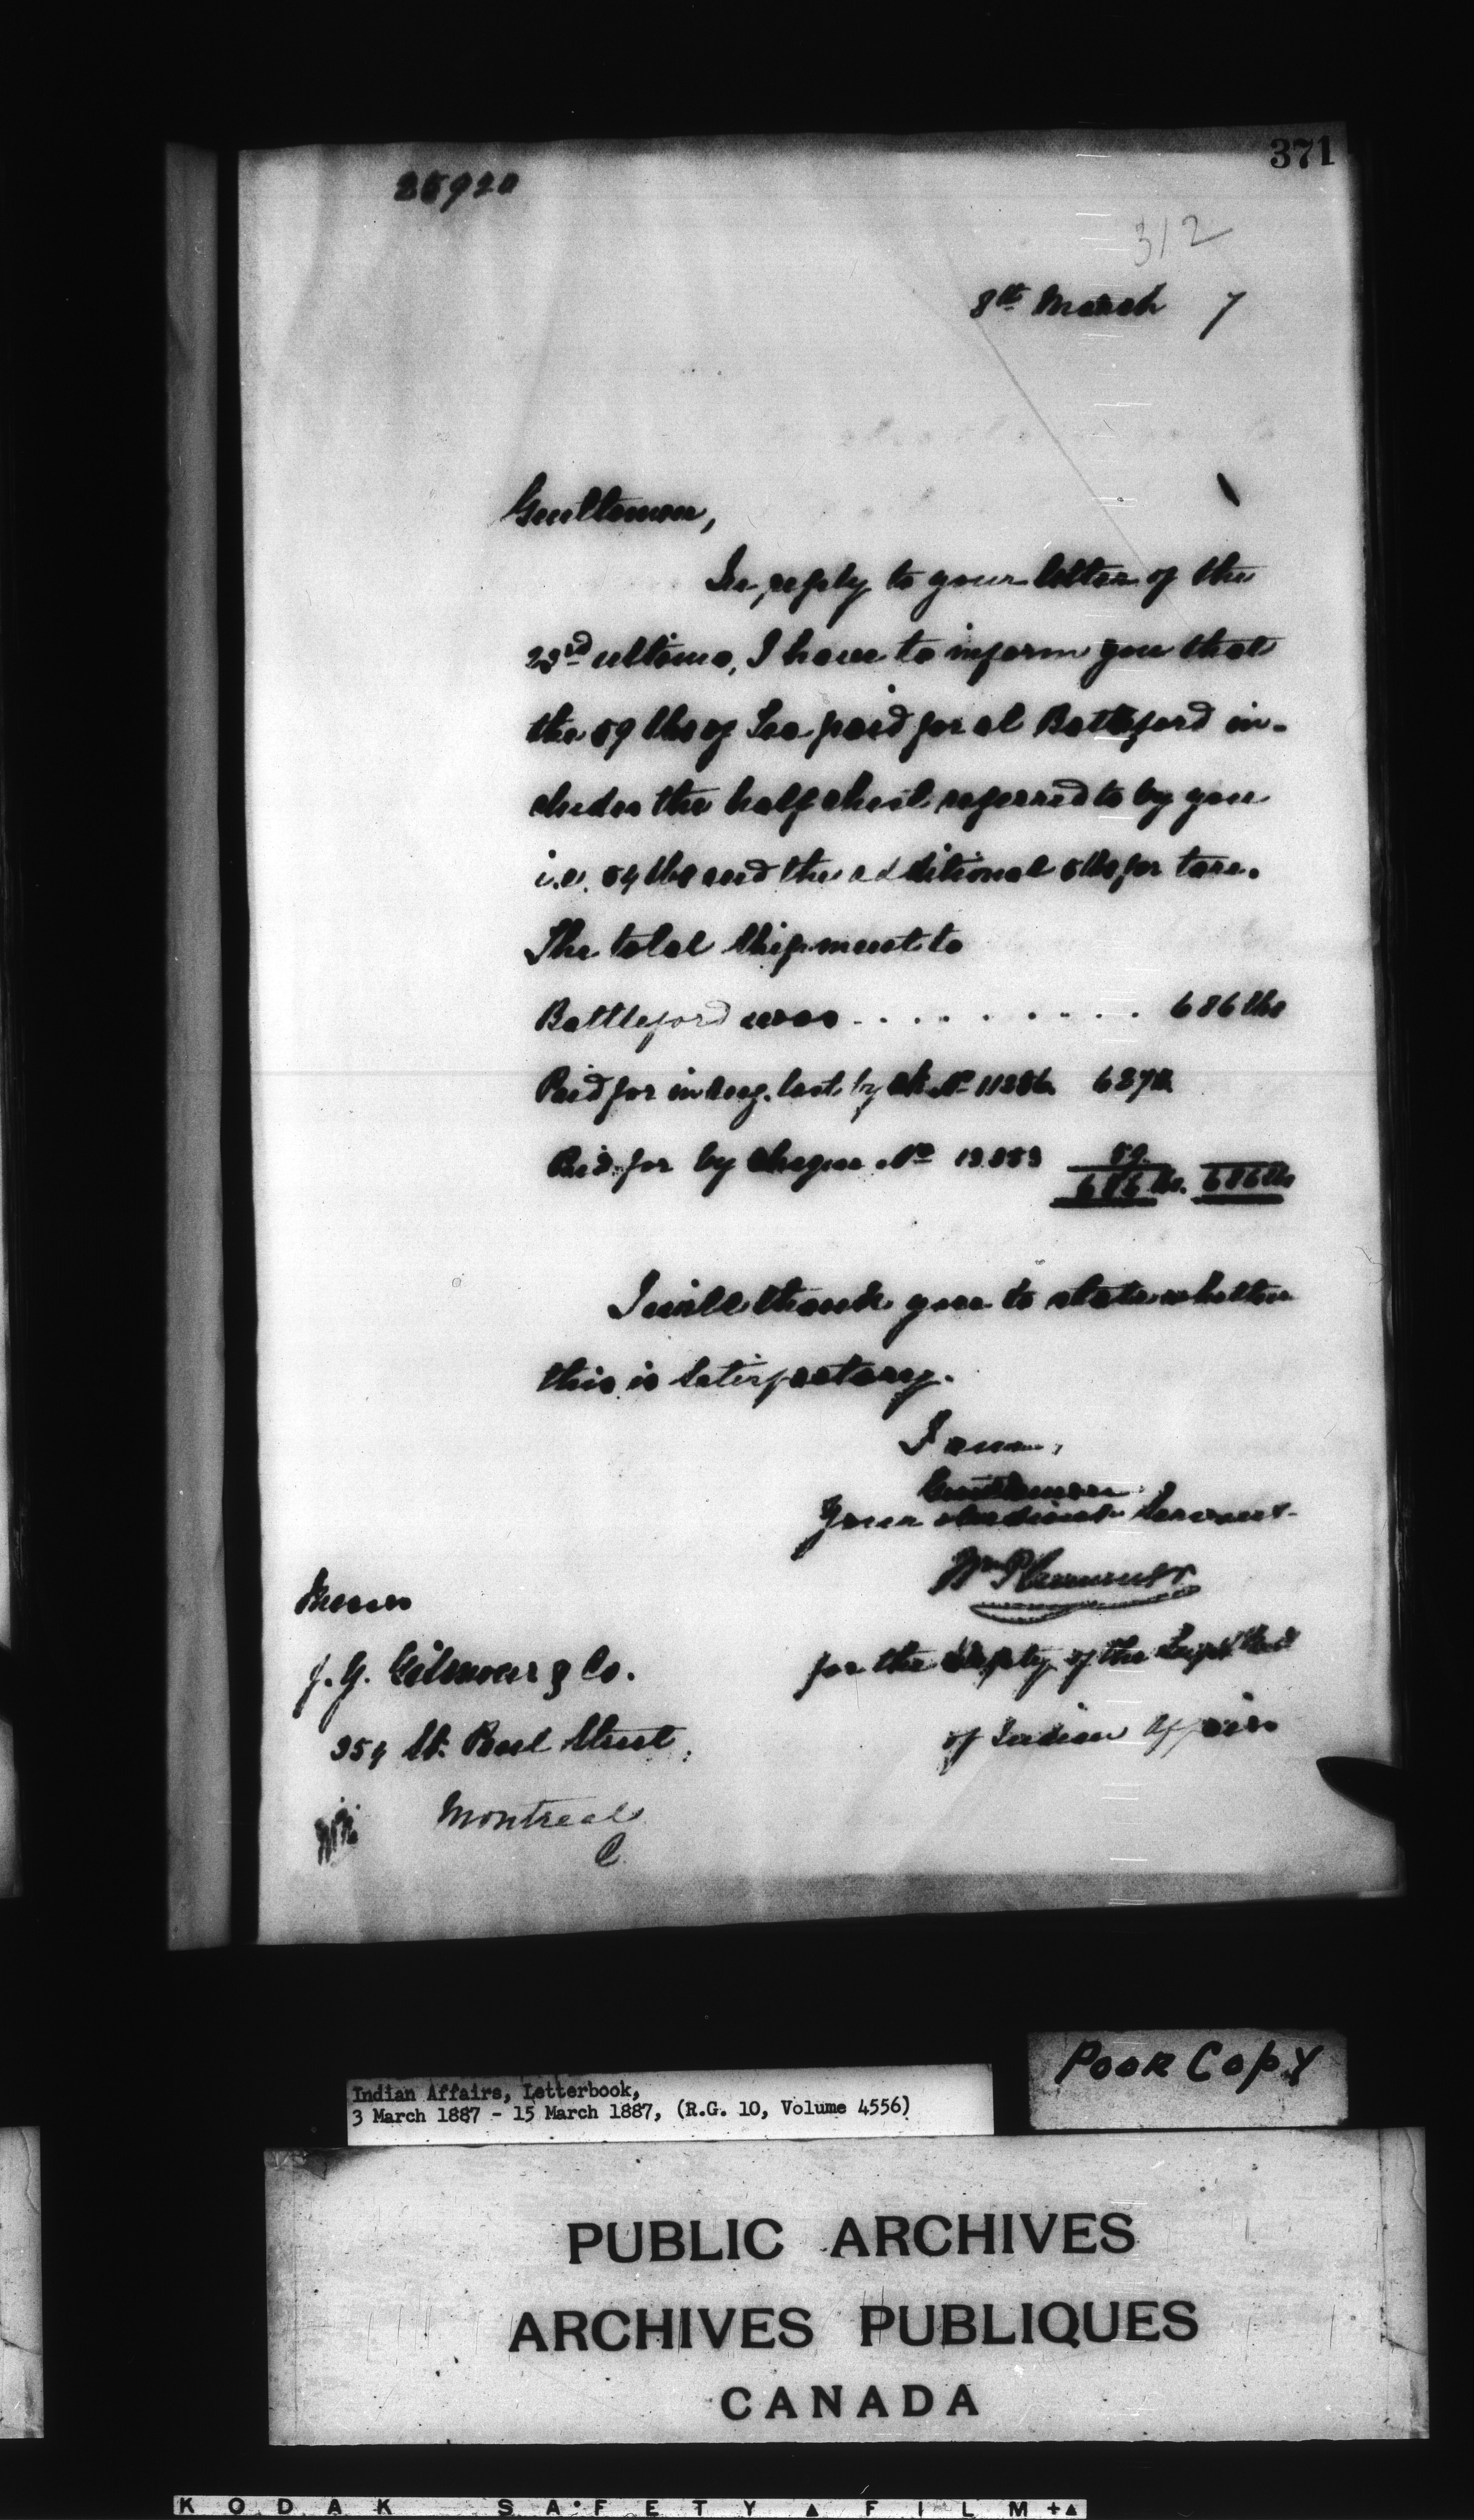 371
312
8th March 7
Gentlemen,
In reply to your letter of the
23rd ultimo, I have to inform you that
the 59 lbs of Tea paid for at Battleford in-
cludes the half chest referred to by you
i.e. 54 lbs and the additional 5 lbs for tare.
The total shipment to
Battleford was .......... 686 lbs
Paid for in Aug. last by ch No 627 lbs
Paid for by Cheque No 59
686 lbs. 686 lbs
I will thank you to state whether
this is satisfactory.
I am,
Gentlemen
Your obedient Servant
for the Deputy of the Supt Genl
of Indian Affairs
Messrs
J. G. & Co.
354 St. Paul Street,
Montreal
Poor Copy
Indian Affairs, Letterbook,
3 March 1887 - 15 March 1887, (R.G. 10, Volume 4556)
PUBLIC ARCHIVES
ARCHIVES PUBLIQUES
CANADA
KODAK SAFETY FILM